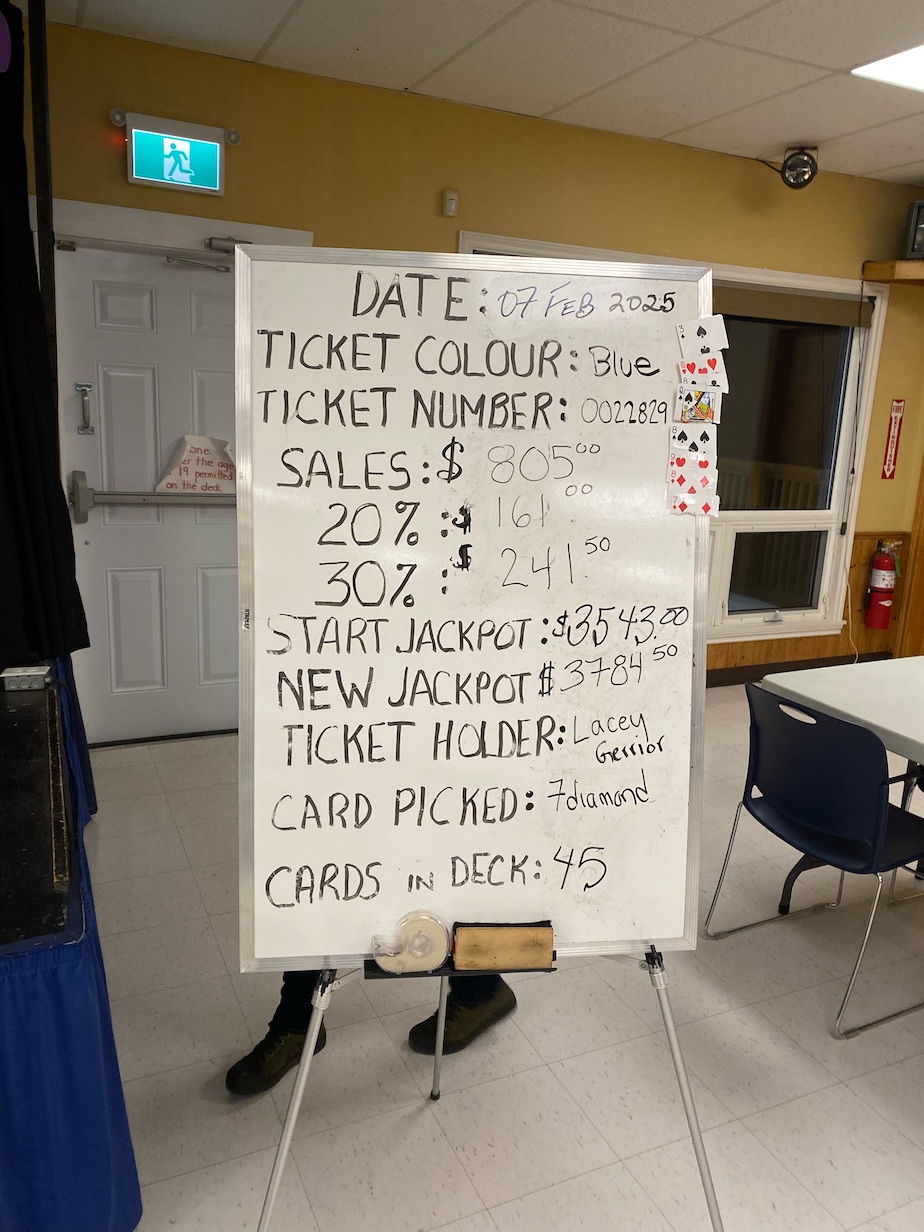 DATE: 07 FEB 2025
TICKET COLOUR: Blue
TICKET NUMBER: 0022829
SALES: $ 805.00
20% : $ 161.00
30% : $ 241.50
START JACKPOT: $3543.00
NEW JACKPOT $ 3784.50
TICKET HOLDER: Lacey
Gerrior
CARD PICKED: 7diamond
CARDS IN DECK: 45
one
er the age
19 permitted
on the deck
FIRE